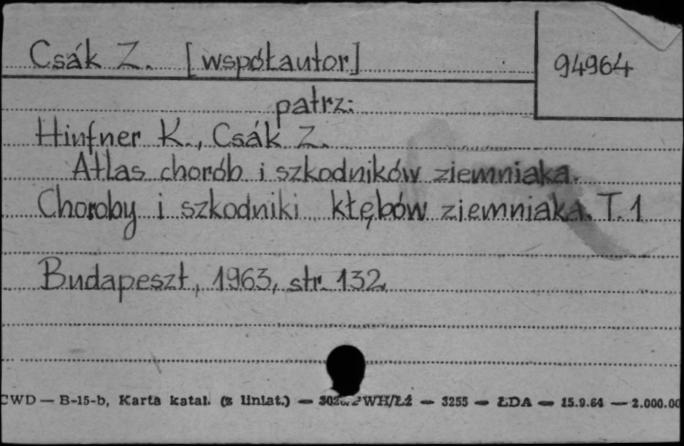 Csák Z. [współautor]
94964
patrz:
Hinfner K., Csák Z.
Atlas chorób i szkodników ziemniaka.
Choroby i szkodniki kłębów ziemniaka. T. 1
Budapeszt, 1963, str. 132
CWD — B-15-b, Karta katal. (z liniat.) — PWH/Łź — 3255 — ŁDA — 15.9.64 — 2.000.00